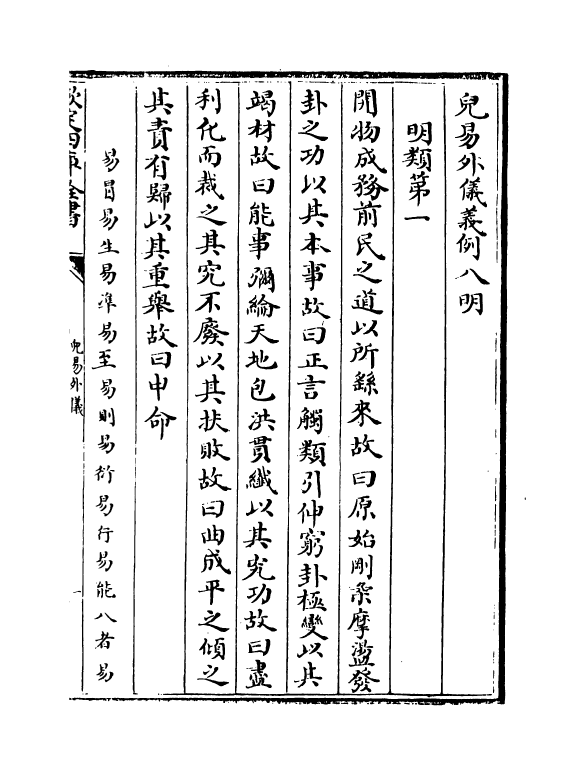 兒易外儀義例八明
明類第一
開物成務前民之道以所繇來故曰原始剛柔摩盪發
卦之功以其本事故曰正言觸類引伸窮卦極變以其
竭材故曰能事彌綸天地包洪貫纎以其究功故曰盡
利化而裁之其究不廢以其扶敗故曰曲成平之傾之
其責有歸以其重舉故曰申命
易冒易生易準易至易則易衍易行易能八者易
欽定四庫全書
兒易外儀
一